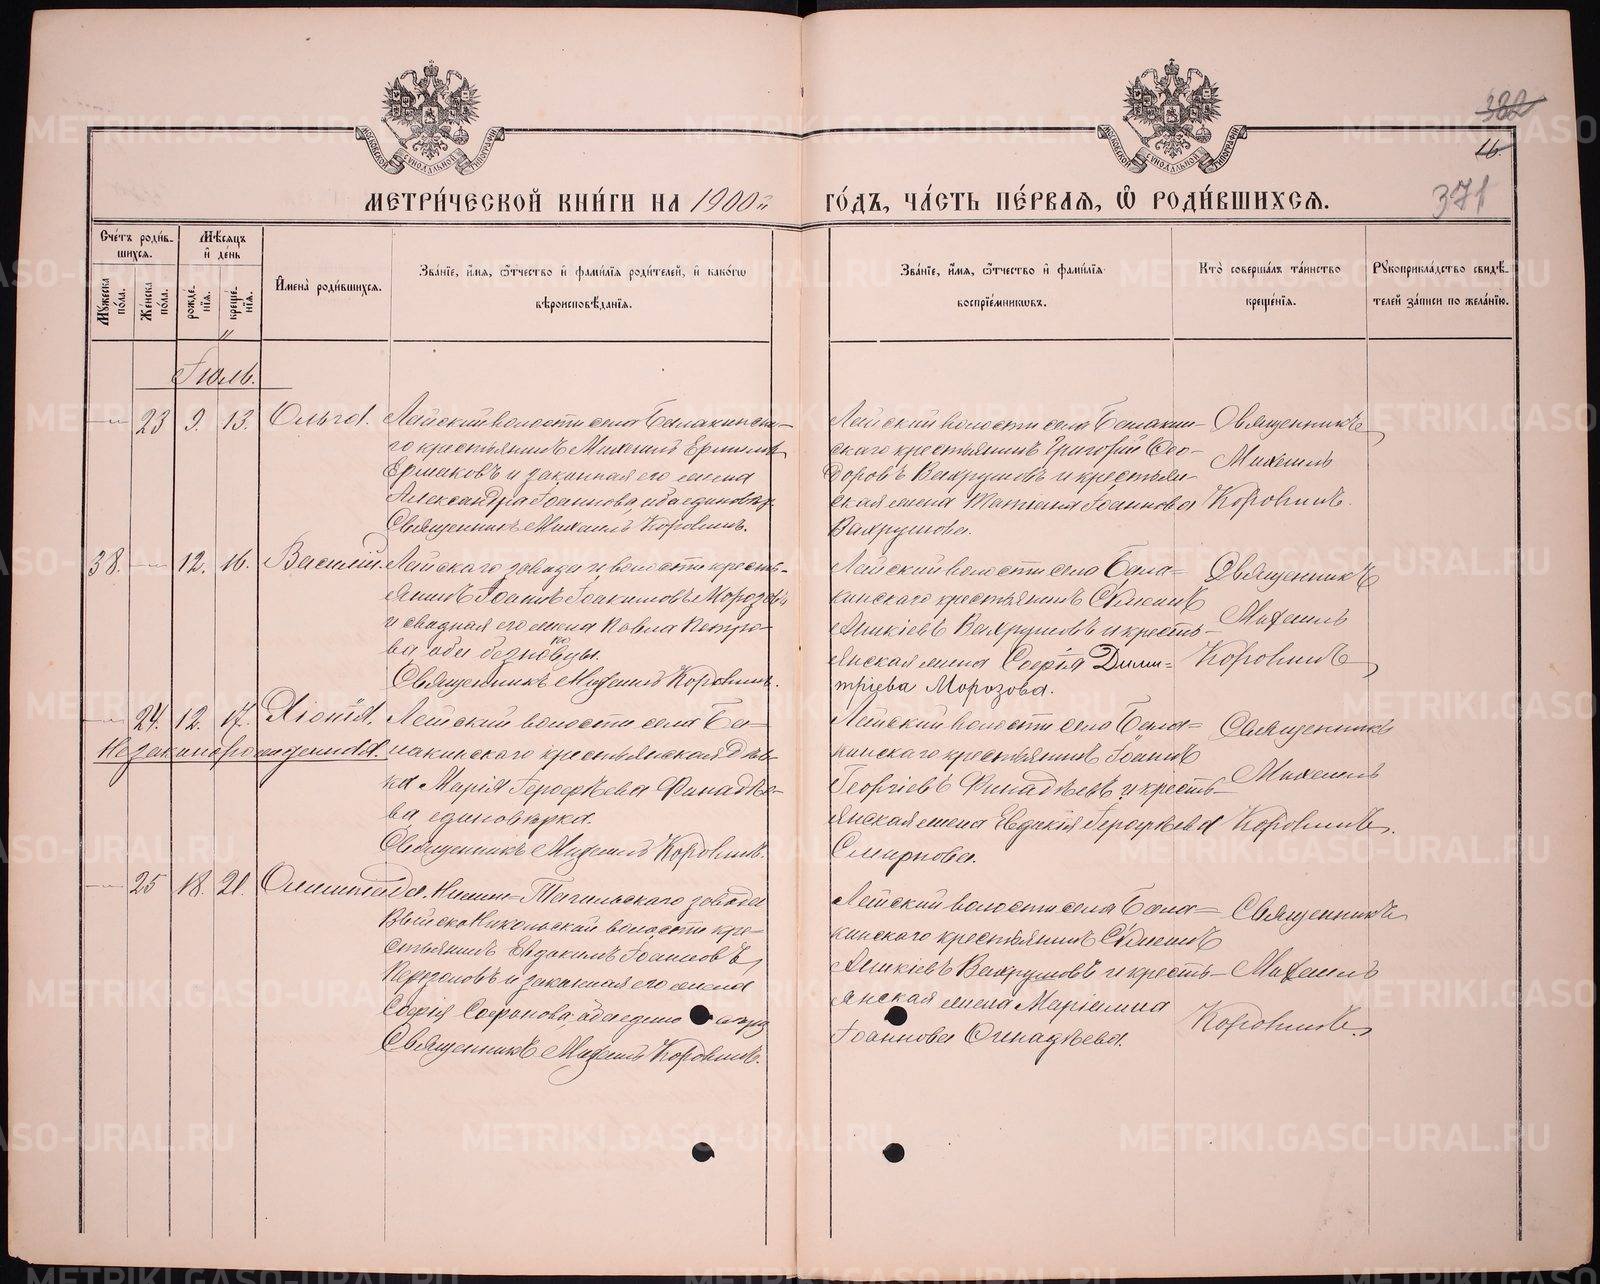 МЕТРИ́ЧЕСКОЙ КНИ́ГИ НА 1900й ГО́ДЪ, ЧА́СТЬ ПЕ́РВАЯ, Ѿ РОДИ́ВШИХСЯ.
322
16.
371
Сче́тъ роди́в-
шихся.
Мѣ́сяцъ
и҆ де́нь
Му́жеска
по́ла.
Же́нска
по́ла.
рожде́-
нїя.
креще́-
нїя.
И҆мена̀ роди́вшихся.
Зва́нїе, и҆́мя, ѻ҆́тчество и҆ фами́лїя роди́телей, и҆ како́гѡ
вѣроисповѣ́данїя.
Зва́нїе, и҆́мя, ѻ҆́тчество и҆ фами́лїя
воспрїе́мниковъ.
Кто̀ соверша́лъ та́инство
креще́нїя.
Рꙋкоприкла́дство свидѣ́-
телей за́писи по жела́нїю.
Іюль.
23 9. 13. Ольга.
Лайской волости села Балакинска-
го крестьянинъ Михаилъ
Ермаковъ и законная его жена
Александра Іоаннова, оба единовѣр.
Священникъ Михаилъ Коровинъ.
Лайской волости села Балакин-
скаго крестьянинъ Григорій Ѳео-
доровъ Вахрушовъ и крестьян-
ская жена Татіана Іоаннова
Вахрушова.
Священникъ
Михаилъ
Коровинъ.
38. 12. 16. Василій.
Лайскаго завода и волости кресть-
янинъ Іоаннъ Іоакимовъ Морозовъ
и сводная его жена Павла Петро-
ва оба безповцы.
по
Священникъ Михаилъ Коровинъ.
Лайской волости села Бала-
кинскаго крестьянинъ Симеонъ
Аникіевъ Вахрушовъ и кресть-
янская жена Софія Дими-
тріева Морозова.
Священникъ
Михаилъ
Коровинъ
24. 12. 17. Хіонія.
Незаконорожденная.
Лайской волости села Ба-
лакинскаго крестьянская дѣв-
ка Марія Ѳерофѣева Финадѣе-
ва единовѣрка.
Священникъ Михаилъ Коровинъ.
Лайской волости села Бала-
кинскаго крестьянинъ Іоаннъ
Георгіевъ Финадѣевъ и кресть-
янская жена Евдокія Ѳерофѣева
Смирнова.
Священникъ
Михаилъ
Коровинъ.
25 18. 21. Олимпіада.
Нижне-Тагильскаго завода
Выйско Никольской волости кре-
стьянинъ Евдокимъ Іоанновъ
и законная его жена
Софія Софронова, оба едино
Священникъ Михаилъ Коровинъ.
Лайской волости села Бала-
кинскаго крестьянинъ Симеонъ
Аникіевъ Вахрушовъ и кресть-
янская жена Маріамна
Іоаннова
Священникъ
Михаилъ
Коровинъ.
METRIKI.GASO-URAL.RU